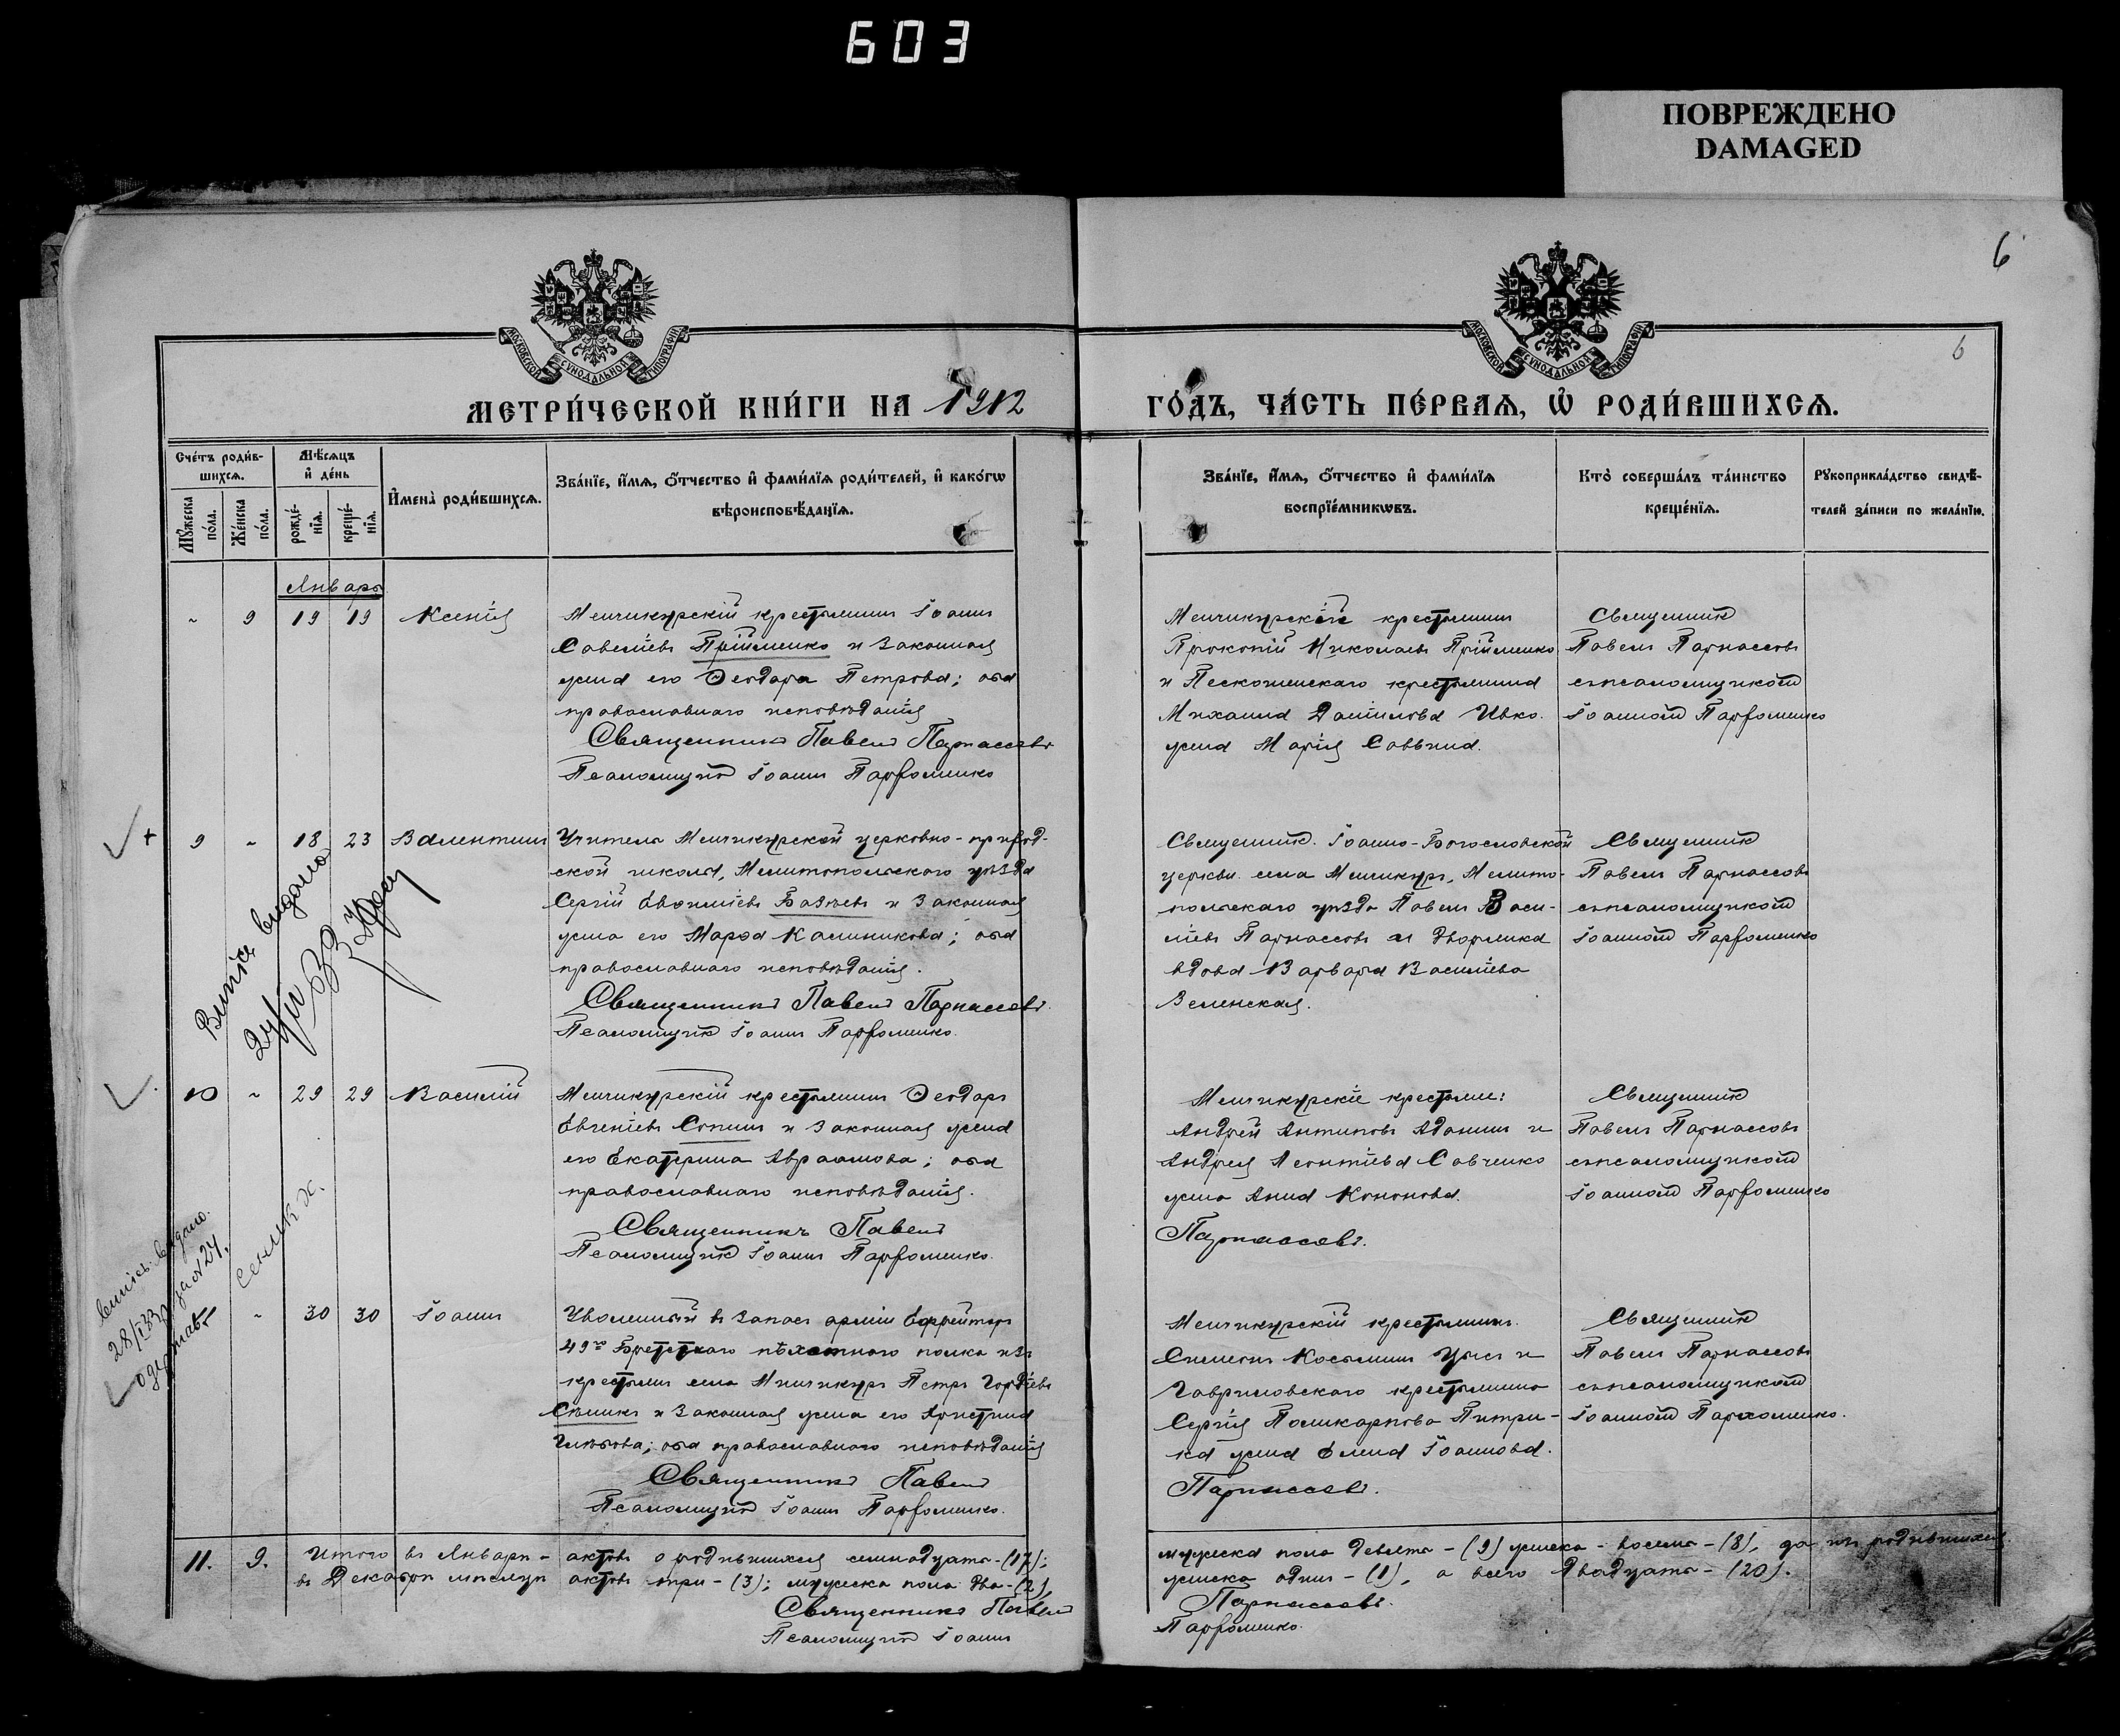 603
ПОВРЕЖДЕНО
DAMAGED
6
6
МОСКОВСКОЙ СѴНОДАЛЬНОЙ ТИПОГРАФІИ
МОСКОВСКОЙ СѴНОДАЛЬНОЙ ТИПОГРАФІИ
МЕТРИ́ЧЕСКОЙ КНИ́ГИ НА 1912 ГО́ДЪ, ЧА́СТЬ ПЕ́РВАѦ, Ѡ҆ РОДИ́ВШИХСѦ.
Сче́тъ роди́в-
шихсѧ.
Мꙋ́жеска по́ла.
Же́нска по́ла.
Мѣ́сѧцъ
и҆ де́нь
рожде́-
нїѧ.
креще́-
нїѧ.
И҆мена̀ роди́вшихсѧ.
Зва́нїе, и҆́мѧ, ѻ҆́тчество и҆ фами́лїѧ роди́телей, и҆ како́гѡ
вѣроисповѣ́данїѧ.
Зва́нїе, и҆́мѧ, ѻ҆́тчество и҆ фами́лїѧ
воспрїе́мникѡвъ.
Кто̀ соверша́лъ та́инство
креще́нїѧ.
Рꙋкоприкла́дство свидѣ́-
телей за́писи по жела́нїю.
Январь
9 19 19 Ксенія
Менчикурскій крестьянинъ Іоаннъ
Савеліевъ Прійменко и законная
жена его Ѳеодора Петрова; оба
православнаго исповѣданія
Священникъ Павелъ Парнассовъ
Псаломщикъ Іоаннъ Парфоменко
Менчикурскіе крестьянинъ
Прокопій Николаевъ Прійменко
и Пескошенскаго крестьянина
Михаила Даніилова Ивко.
жена Марія Саввина.
Священникъ
Павелъ Парнассовъ
съ псаломщикомъ
Іоанномъ Парфоменко
9 18 23 Валентинъ
Учитель Менчикурской церковно-приход-
ской школы, Мелитопольскаго уѣзда
Сергій Евѳиміевъ Базѣевъ и законная
жена его Марѳа Калиникова; оба
православнаго исповѣданія.
Священникъ Павелъ Парнассовъ.
Псаломщикъ Іоаннъ Парфоменко.
Священникъ Іоанно-Богословской
церкви села Менчикуръ, Мелито-
польскаго уѣзда Павелъ Васи-
ліевъ Парнассовъ и дворянка
вдова Варвара Василіева
Зеленская.
Священникъ
Павелъ Парнассовъ
съ псаломщикомъ
Іоанномъ Парфоменко
10 29 29 Василій
Менчикурскій крестьянинъ Ѳеодоръ
Евгеніевъ Сопинъ и законная жена
его Екатерина Авраамова; оба
православнаго исповѣданія.
Священникъ Павелъ
Псаломщикъ Іоаннъ Парфоменко.
Менчикурскіе крестьяне:
Андрей Антиповъ Аданинъ и
Андрея Леонтіева Савченко
жена Анна Кононова.
Парнассовъ.
Священникъ
Павелъ Парнассовъ
съ псаломщикомъ
Іоанномъ Парфоменко
30 30 Іоаннъ
Уволенный въ запасъ арміи Ефрейторъ
49го Брестскаго пѣхотнаго полка изъ
крестьянъ села Менчикуръ Петръ Гордѣевъ
Сѣникъ и законная жена его Христина
православнаго исповѣданія
Священникъ Павелъ
Псаломщикъ Іоаннъ Парфоменко.
Менчикурскій крестьянинъ.
Симеонъ Косьминъ и
Гавриловскаго крестьянина
Сергія Поликарпова Питри-
ка жена Елена Іоаннова.
Парнассовъ.
Священникъ
Павелъ Парнассовъ
съ псаломщикомъ
Іоанномъ Пархоменко.
11. 9. Итого въ Январѣ - актовъ о родившихся семнадцать-(17); мужеска пола девять-(9) женска-восемь-(8), да
въ Декабрѣ мѣсяцѣ актовъ три-(3); мужеска пола два-(2), женска одинъ-(1), а всего двадцать-(20).
Священникъ Павелъ Парнассовъ.
Псаломщикъ Іоаннъ Парфоменко.